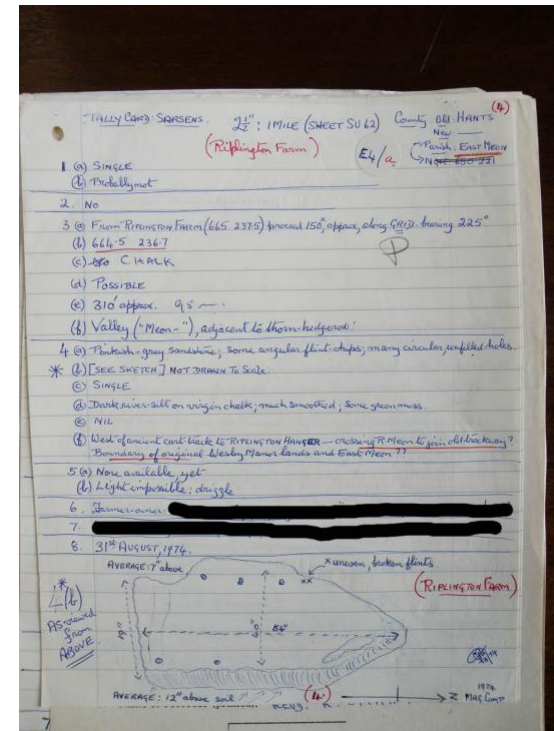 (4)
TALLY CARD: SARSENS. 2½" : 1 MILE (SHEET SU 62) County Old HANTS
New —
(Riplington Farm) E4/a Parish: EAST MEON
NGR 650 221
1 (a) SINGLE
(b) Probably not
2. No
3 (a) From RIPLINGTON FARM (665 2375) proceed 150', approx, along GRID bearing 225°
(b) 664.5 236.7 P
(c) CHALK
(d) POSSIBLE
(e) 310' approx.
(f) Valley ("Meon-"), adjacent to thorn-hedgerow.
4 (a) Pinkish-grey sandstone; some angular flint chips; many circular, unfilled holes.
* (b) [SEE SKETCH] NOT DRAWN TO Scale.
(c) SINGLE
(d) Dark river-silt on virgin chalk; much smoothed; some green moss.
(e) NIL
(f) West of ancient cart-track to RIPLINGTON HANGER — crossing R Meon to join old trackway?
Boundary of original Westby Manor lands and East Meon ??
5 (a) None available, yet
(b) Light impossible; drizzle
6. Farmer-owner:
7.
8. 31st AUGUST, 1974.
AVERAGE: 7" above x uneven, broken flints
(RIPLINGTON FARM)
* 4(b)
AS viewed from ABOVE
19"
xx
40"
54"
AVERAGE: 12" above soil (4) Z 1974 MAG Comp
7